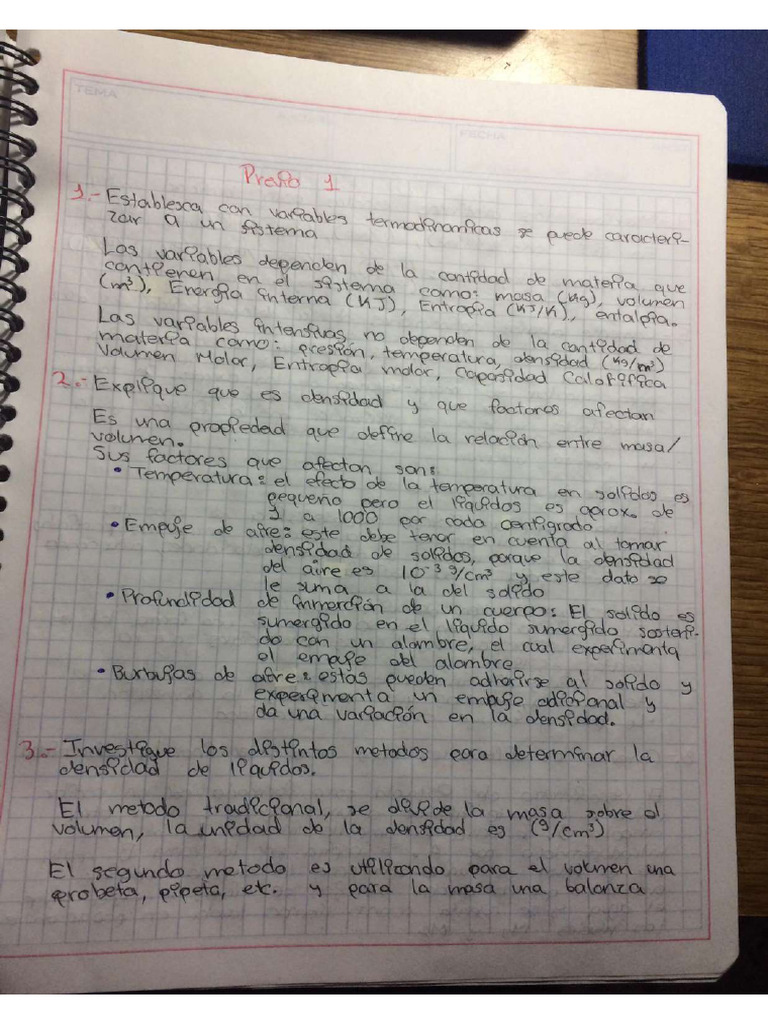 TEMA
FECHA
Previo 1
1.- Establesca con variables termodinamicas se puede caracteri-
zar a un sistema
Las variables dependen de la cantidad de materia que
contienen en el sistema como: masa (Kg), volumen
(m³), Energia interna (KJ), Entropia (KJ/K), entalpia.
Las variables intensivas no dependen de la cantidad de
materia como: presión, temperatura, densidad (Kg/m³)
Volumen Molar, Entropia molar, Capasidad Calorifica
2.- Explique que es densidad y que factores afectan
Es una propiedad que define la relación entre masa/
volumen.
Sus factores que afectan son:
• Temperatura: el efecto de la temperatura en solidos es
pequeño pero el liquidos es aprox. de
1 a 1000 por cada centigrado
• Empuje de aire: este debe tener en cuenta al tomar
densidad de solidos, porque la densidad
del aire es 10⁻³ g/cm³ y este dato se
le suma a la del solido
• Profundidad de inmerción de un cuerpo: El solido es
sumergido en el liquido sumergido sosteni-
do con un alambre, el cual experimenta
el empuje del alambre
• Burbujas de aire: estas pueden adherirse al solido y
experimenta un empuje adicional y
da una variación en la densidad.
3.- Investigue los distintos metodos para determinar la
densidad de liquidos.
El metodo tradicional, se divide la masa sobre el
volumen, la unidad de la densidad es (g/cm³)
El segundo metodo es utilizando para el volumen una
probeta, pipeta, etc. y para la masa una balanza